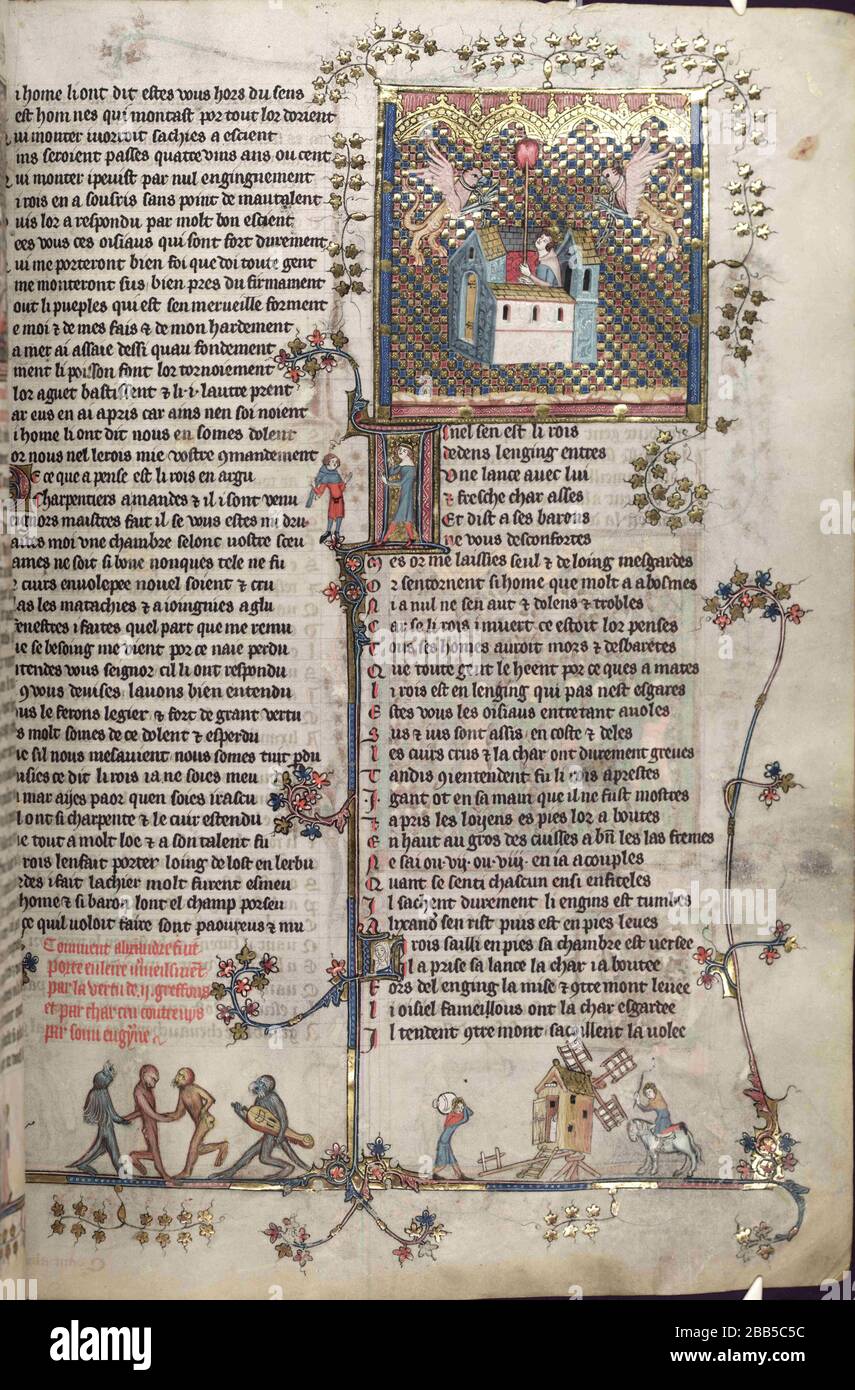 i home li ont dit estes vous hors du sens
est hom nes qui montast por tout lor dorient
ui monter uoit sachies a escient
ins seroient passes quatre vins ans ou cent
ui monter i peuist par nul engingnement
i rois en a sousris sans point de mautalent
uis lor a respondu par molt bon escient
ees vous ces oisiaus qui sont fort durement
ui me porteront bien foi que doi toute gent
me monteront sus bien pres du firmament
out li pueples qui est sen merueille forment
e moi & de mes fais & de mon hardement
a mer ai assaie dessi quau fondement
ment li poisson font lor tornoiement
lor aguet bastissent & li .i. lautre prent
ar eus en ai apris car ains nen soi noient
i home li ont dit nous en somes dolent
or nous nel lerois mie vostre 9mandement
De ce que a pense est li rois en argu
Charpentiers a mandes & il i sont venu
ignors maistres fait il se vous estes mi dru
aites moi vne chambre selonc uostre sceu
ames ne soit si bone nonques tele ne fu
r cuirs enuolepee nouel soient & cru
as les matachies & a ioingnies a glu
enestres i faites quel part que me remu
ie se besoing me vient por ce naie perdu
itendes vous seignor cil li ont respondu
9 vous deuises lauons bien entendu
us le ferons legier & fort de grant vertu
s molt somes de ce dolent & esperdu
ie sil nous mesauient nous somes tuit pdu
usies ce dit li rois ia ne soies meu
i mar aijes paor quen soies irascu
l ont si charpente & le cuir estendu
ie tout a molt loe & a son talent fu
rois lenfait porter loing de lost en lerbu
rdes i fait lachier molt furent esmeu
home & si baron lont el champ porseu
ce quil uoloit faire sont paoureus & mu
Comment alixandre se fist
porter en lair
par la vertu de .ij. greffons
et par char cru
par son engyne
Inel sen est li rois
dedens lenging entres
Vne lance auec lui
& fresche char asses
Et dist a ses barons
ne vous desconfortes
Mes or me laissies seul & de loing mesgardes
Or sentornent si home que molt a abosmes
N i a nul ne sen aut & dolens & trobles
Car se li rois i muert ce estoit lor penses
Tous ses homes auroit mors & desbaretes
Que toute gent le heent por ce ques a mates
Li rois est en lenging qui pas nest esgares
Estes vous les oisiaus entretant auoles
Sus & ius sont assis en coste & deles
Les cuirs crus & la char ont durement greues
Tandis 9i entendent fu li rois aprestes
.I. gant ot en sa main que il ne fust mostres
Tapris les loyens es pies lor a boutes
En haut au gros des cuisses a bn les las fremes
Ne sai ou .vij. ou .viij. en i a acouples
Quant se senti chascun ensi enfiteles
Il sachent durement li engins est tumbes
Alixand sen rist puis est en pies leues
Li rois sailli en pies sa chambre est versee
Il a prise sa lance la char i a boutee
Fors del enging la mise & 9tre mont leuee
Li oisiel fameillous ont la char esgardee
Il tendent 9tre mont saceillent la uolee
alamy
Image ID: 2BB5C5C
www.alamy.com